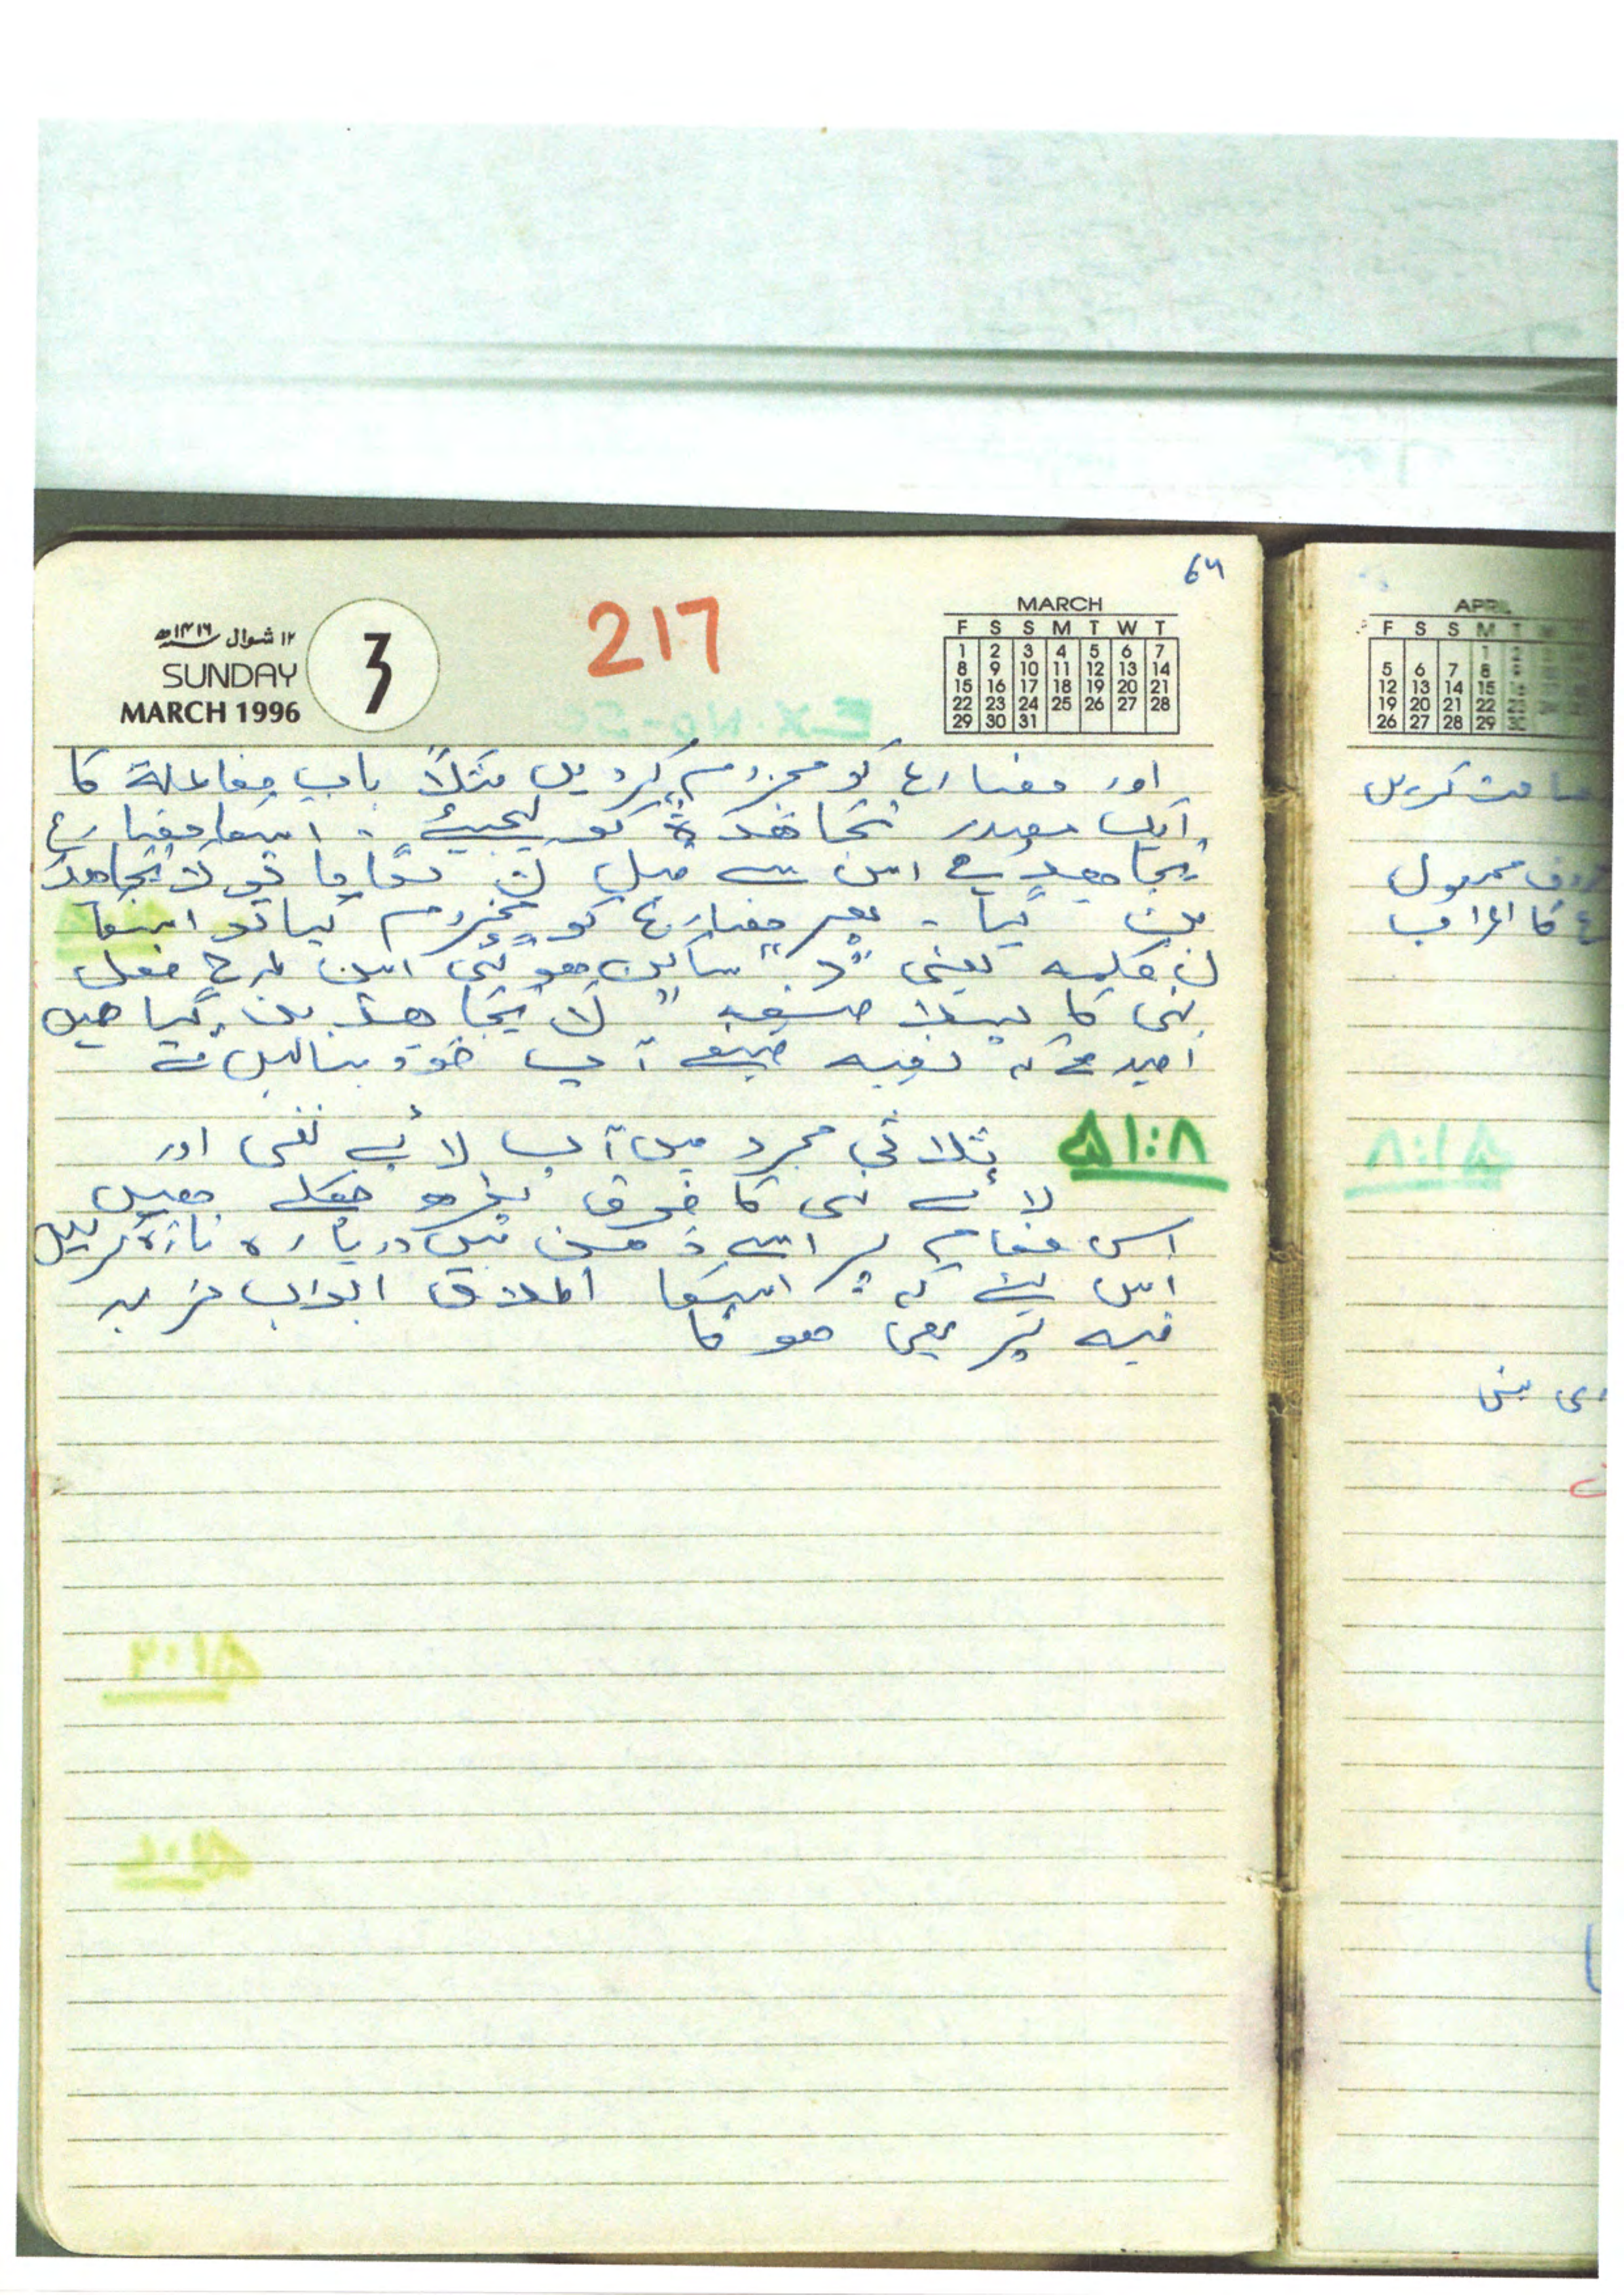 64
217
۱۲ شوال ۱۴۱۶ھ
SUNDAY
MARCH 1996
3
MARCH
F S S M T W T
1 2 3 4 5 6 7
8 9 10 11 12 13 14
15 16 17 18 19 20 21
22 23 24 25 26 27 28
29 30 31
اور مضارع کو مجزوم کردیں مثلاً باب مفاعلة کا
ایک مصدر مُجَاهَدَةٌ کو لیجیئے ۔ اسکا مضارع
یُجَاهِدُ ہے اس سے قبل لَا لگایا تو لا یجاهدُ
بن گیا ۔ پھر مضارع کو مجزوم کیا تو اسکا
ل کلمہ یعنی "د" ساکن ہو گئی اس طرح فعل
نہی کا پہلا صیغہ "لا یُجَاهِدْ بن گیا
امید ہے کہ بقیہ صیغے آپ خود بنالیں گے
۵۱:۸ ثلاثی مجرد میں آپ لائے نفی اور
لائے نہی کا فرق پڑھ چکے ہیں
اس مقام پر اسے ذہن میں دوبارہ تازہ کرلیں
اس لئے کہ اسکا اطلاق ابواب مزید
فیہ پر بھی ہو گا
APRIL
F S S M T
1 2
5 6 7 8 9
12 13 14 15 16
19 20 21 22 23
26 27 28 29 30
کردیں
مجہول
کا اعراب